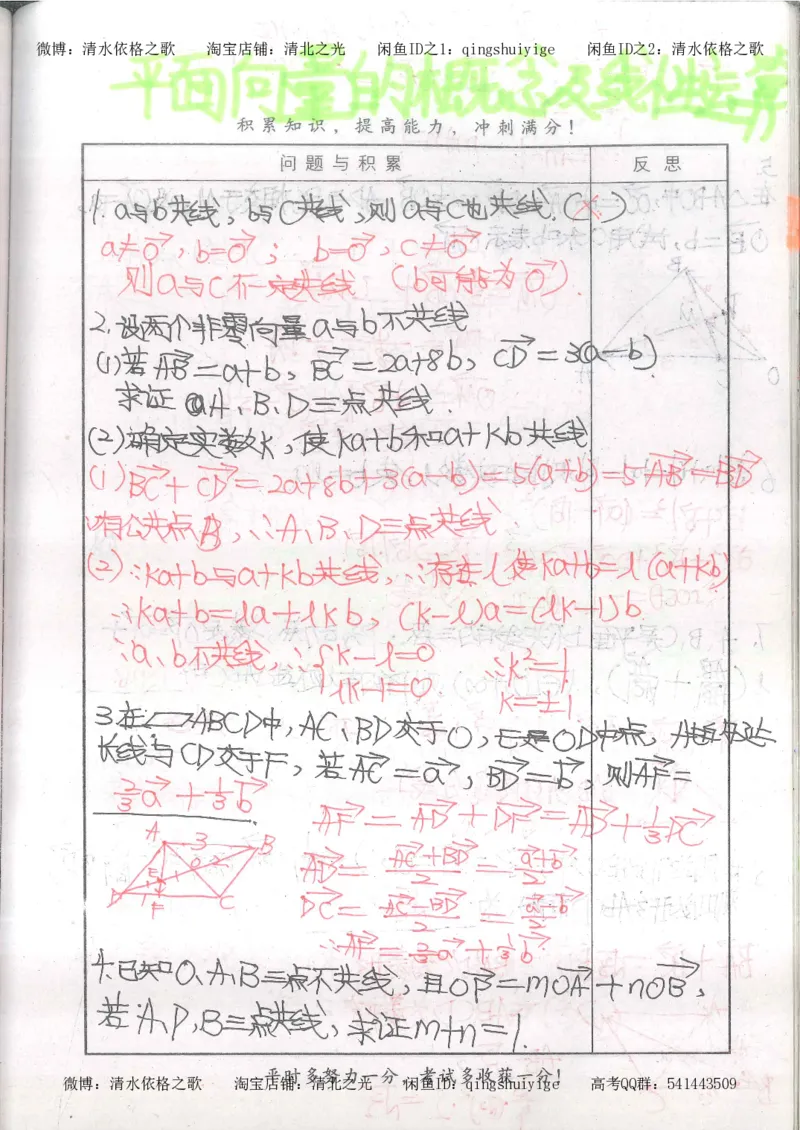 微博：清水依格之歌 淘宝店铺：清北之光 闲鱼ID之1：qingshuiyige 闲鱼ID之2：清水依格之歌
平面向量的概念及线性运算
积累知识，提高能力，冲刺满分！
问题与积累 反思
1. a与b共线，b与c共线，则a与c也共线.（×）
a≠0⃗，b=0⃗； b=0⃗，c≠0⃗
则a与c不一定共线 （b可能为0⃗）
2. 设两个非零向量a与b不共线
(1)若AB⃗=a+b，BC⃗=2a+8b，CD⃗=3(a-b)
求证 A、B、D三点共线.
(2)确定实数k，使ka+b和a+kb共线
(1)BC⃗+CD⃗=2a+8b+3(a-b)=5(a+b)=5AB⃗=BD⃗
∵有公共点B，∴A、B、D三点共线
(2)∵ka+b与a+kb共线，∴存在l使ka+b=l(a+kb)
∴ka+b=la+lkb，(k-l)a=(lk-1)b
∵a、b不共线，∴{k-l=0 ∴k²=1
lk-1=0 k=±1
3. 在▱ABCD中，AC、BD交于O，E是OD中点，AE延
长线与CD交于F，若AC⃗=a⃗，BD⃗=b⃗，则AF⃗=
2/3a⃗+1/3b⃗
AF⃗=AD⃗+DF⃗=AD⃗+1/3DC⃗
A 3 B
AD⃗=(AC⃗+BD⃗)/2=(a⃗+b⃗)/2
O 2 E 1
D F C
DC⃗=(AC⃗-BD⃗)/2=(a⃗-b⃗)/2
∴AF⃗=2/3a⃗+1/3b⃗
4. 已知O、A、B三点不共线，且OP⃗=mOA⃗+nOB⃗，
若A，P，B三点共线，求证m+n=1.
平时多努力一分，考试多收获一分！
微博：清水依格之歌 淘宝店铺：清北之光 闲鱼ID：qingshuiyige 高考QQ群：541443509